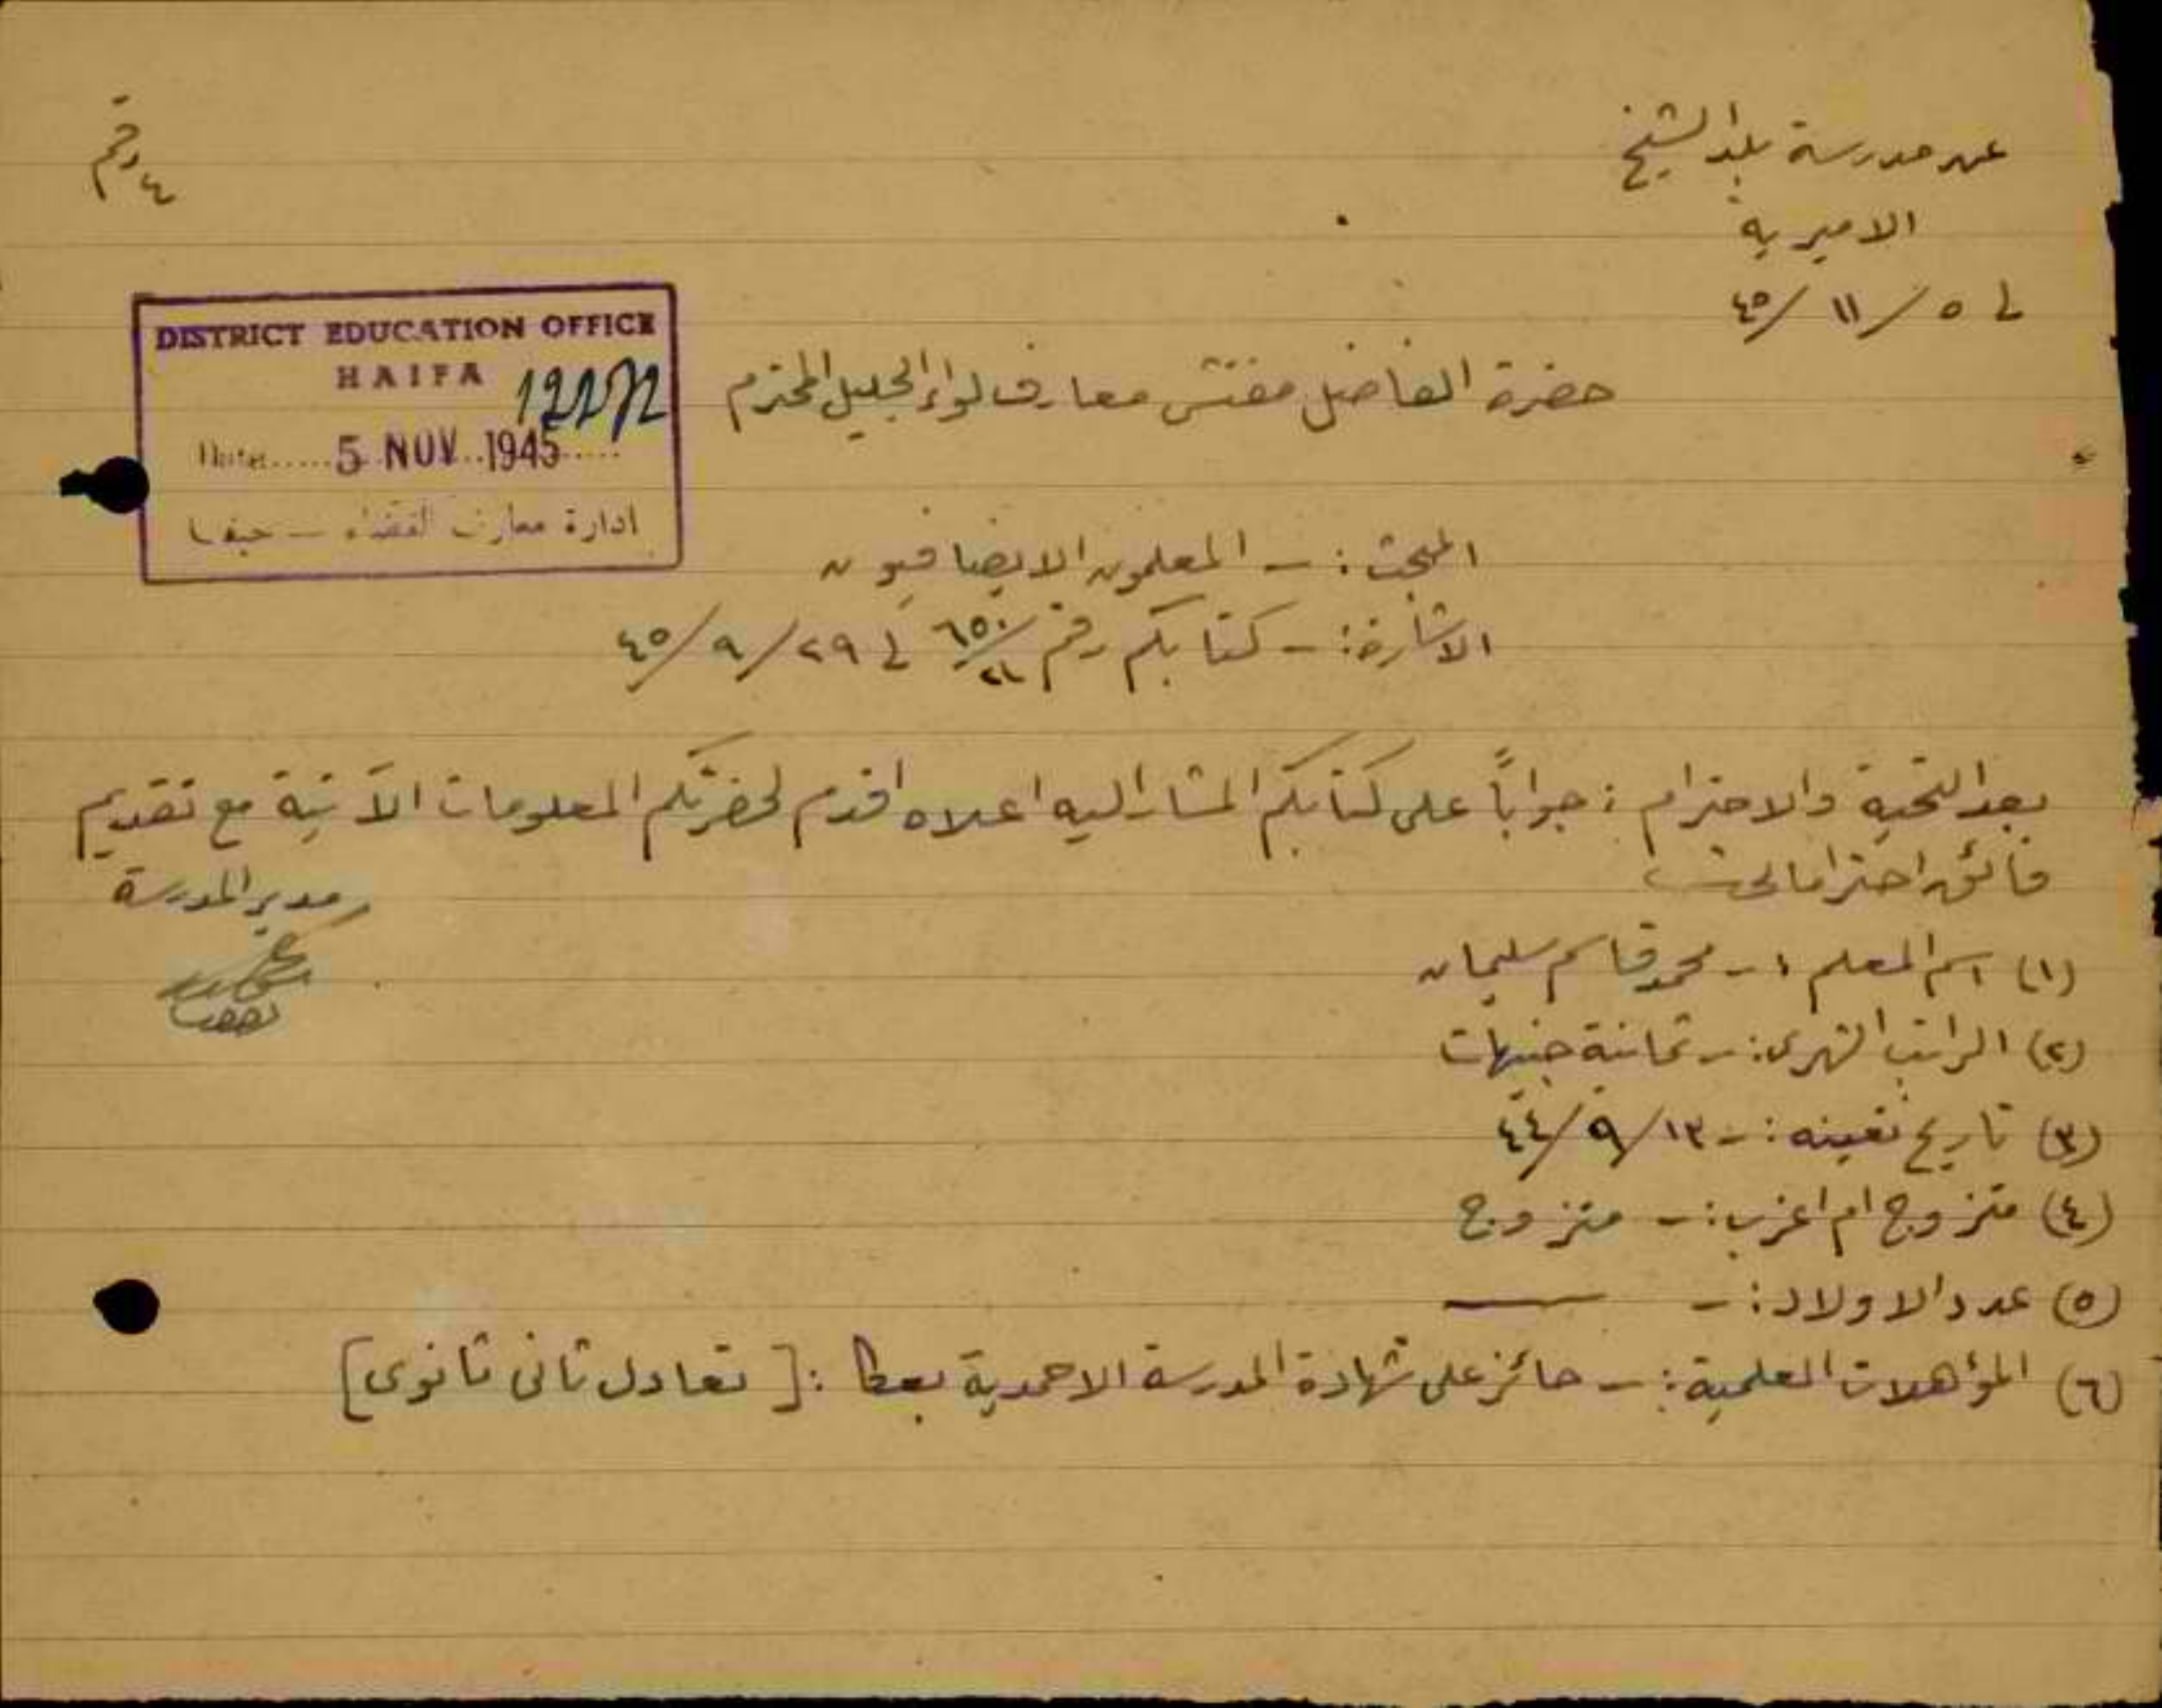 رقم
٤
عن مدرسة بلد الشيخ
الاميرية
في ٥ / ١١ / ٤٥
DISTRICT EDUCATION OFFICE
HAIFA
Date..... 5 NOV. 1945.....
ادارة معارف القضاء – حيفا
حضرة الفاضل مفتش معارف لواء الجليل المحترم
المبحث :– المعلمون الايضافيون
الاشارة :– كتابكم رقم في ٢٩ / ٩ / ٤٥
بعد التحية والاحترام : جواباً على كتابكم المشار اليه اعلاه اقدم لحضرتكم المعلومات الآتية مع تقديم
فائق احترامات
مدير المدرسة
(١) اسم المعلم :– محمد قاسم سليمان
(٢) الراتب الشهري :– ثمانية جنيهات
(٣) تاريخ تعيينه :– ١٣ / ٩ / ٤٤
(٤) متزوج ام اعزب :– متزوج
(٥) عدد الاولاد :– —
(٦) المؤهلات العلمية :– حائز على شهادة المدرسة الاحمدية بعكا : [ تعادل ثانى ثانوى ]